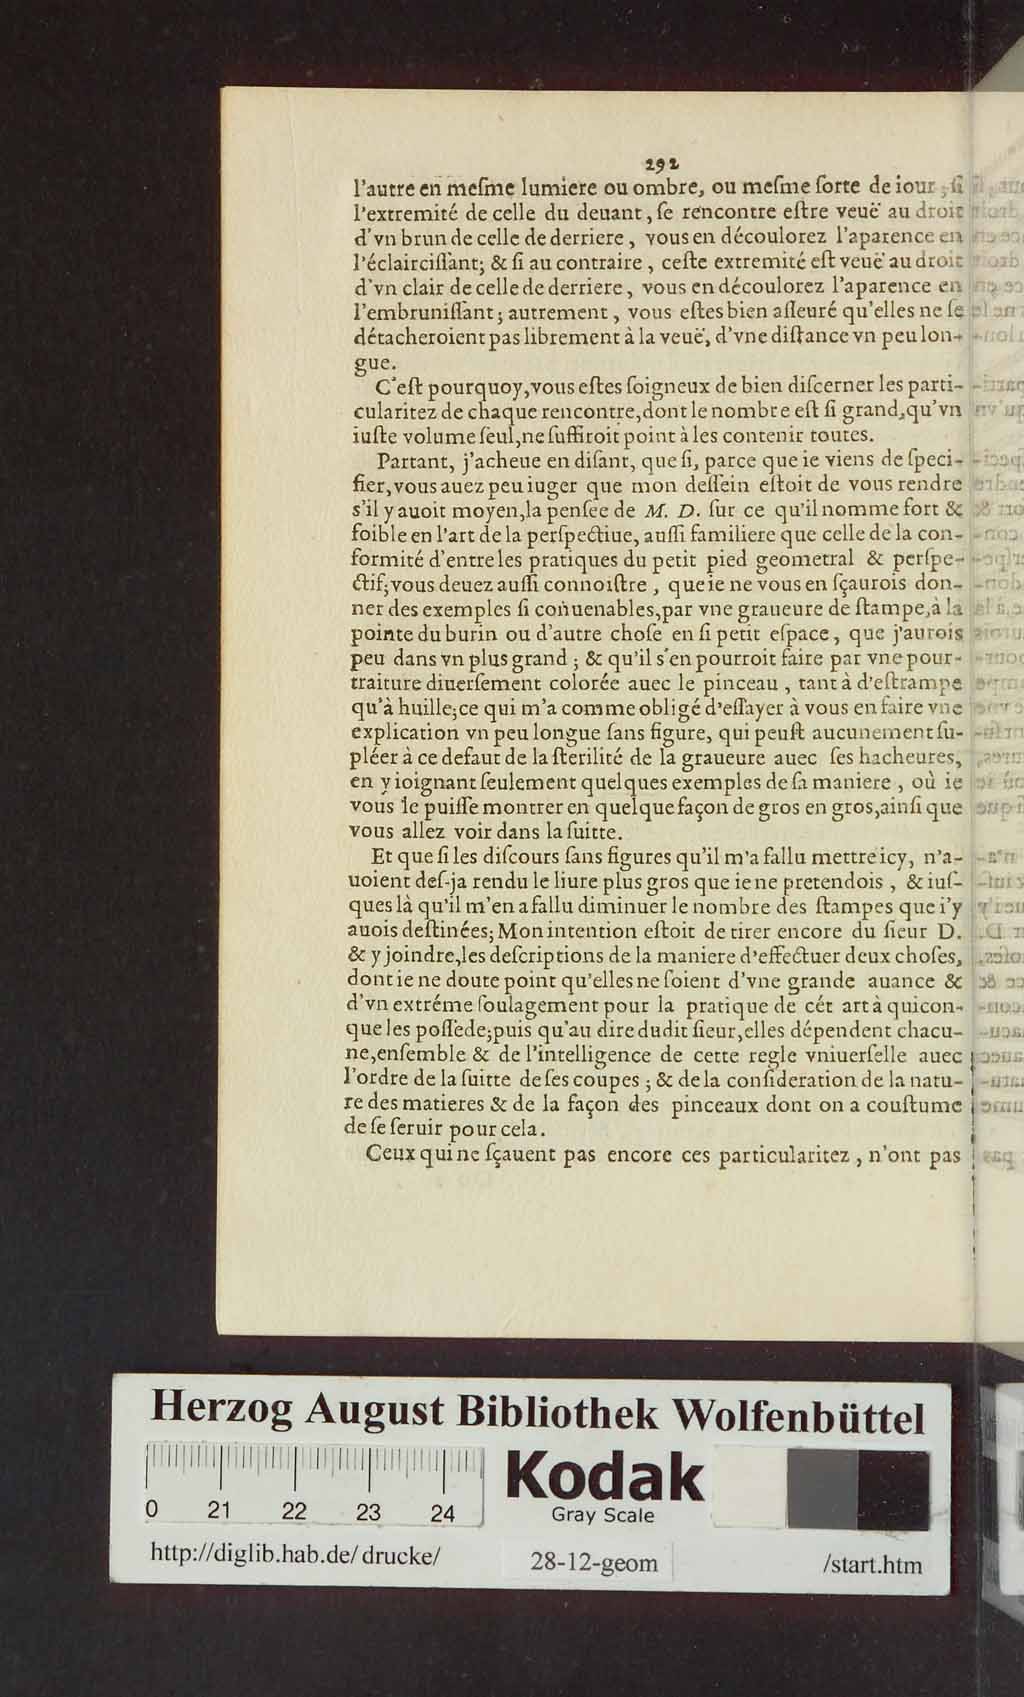 292
l'autre en meſme lumiere ou ombre, ou meſme ſorte de iour ; ſi
l'extremité de celle du deuant, ſe rencontre eſtre veuë au droit
d'vn brun de celle de derriere, vous en découlorez l'aparence en
l'éclairciſſant; & ſi au contraire, ceſte extremité eſt veuë au droit
d'vn clair de celle de derriere, vous en découlorez l'aparence en
l'embruniſſant; autrement, vous eſtes bien aſſeuré qu'elles ne ſe
détacheroient pas librement à la veuë, d'vne diſtance vn peu lon-
gue.
C'eſt pourquoy, vous eſtes ſoigneux de bien diſcerner les parti-
cularitez de chaque rencontre, dont le nombre eſt ſi grand, qu'vn
iuſte volume ſeul, ne ſuffiroit point à les contenir toutes.
Partant, j'acheue en diſant, que ſi, parce que ie viens de ſpeci-
fier, vous auez peu iuger que mon deſſein eſtoit de vous rendre
s'il y auoit moyen, la penſée de M. D. ſur ce qu'il nomme fort &
foible en l'art de la perſpectiue, auſſi familiere que celle de la con-
formité d'entre les pratiques du petit pied geometral & perſpe-
ctif; vous deuez auſſi connoiſtre, que ie ne vous en ſçaurois don-
ner des exemples ſi conuenables, par vne graueure de ſtampe, à la
pointe du burin ou d'autre choſe en ſi petit eſpace, que j'aurois
peu dans vn plus grand ; & qu'il s'en pourroit faire par vne pour-
traiture diuerſement colorée auec le pinceau, tant à d'eſtrampe
qu'à huille; ce qui m'a comme obligé d'eſſayer à vous en faire vne
explication vn peu longue ſans figure, qui peuſt aucunement ſu-
pléer à ce defaut de la ſterilité de la graueure auec ſes hacheures,
en y ioignant ſeulement quelques exemples de ſa maniere, où ie
vous le puiſſe montrer en quelque façon de gros en gros, ainſi que
vous allez voir dans la ſuitte.
Et que ſi les diſcours ſans figures qu'il m'a fallu mettre icy, n'a-
uoient deſ-ja rendu le liure plus gros que ie ne pretendois, & iuſ-
ques là qu'il m'en a fallu diminuer le nombre des ſtampes que i'y
auois deſtinées; Mon intention eſtoit de tirer encore du ſieur D.
& y joindre, les deſcriptions de la maniere d'effectuer deux choſes,
dont ie ne doute point qu'elles ne ſoient d'vne grande auance &
d'vn extréme ſoulagement pour la pratique de cét art à quicon-
que les poſſede; puis qu'au dire dudit ſieur, elles dépendent chacu-
ne, enſemble & de l'intelligence de cette regle vniuerſelle auec
l'ordre de la ſuitte de ſes coupes ; & de la conſideration de la natu-
re des matieres & de la façon des pinceaux dont on a couſtume
de ſe ſeruir pour cela.
Ceux qui ne ſçauent pas encore ces particularitez, n'ont pas
Herzog August Bibliothek Wolfenbüttel
0 21 22 23 24
Kodak
Gray Scale
http://diglib.hab.de/drucke/ 28-12-geom /start.htm